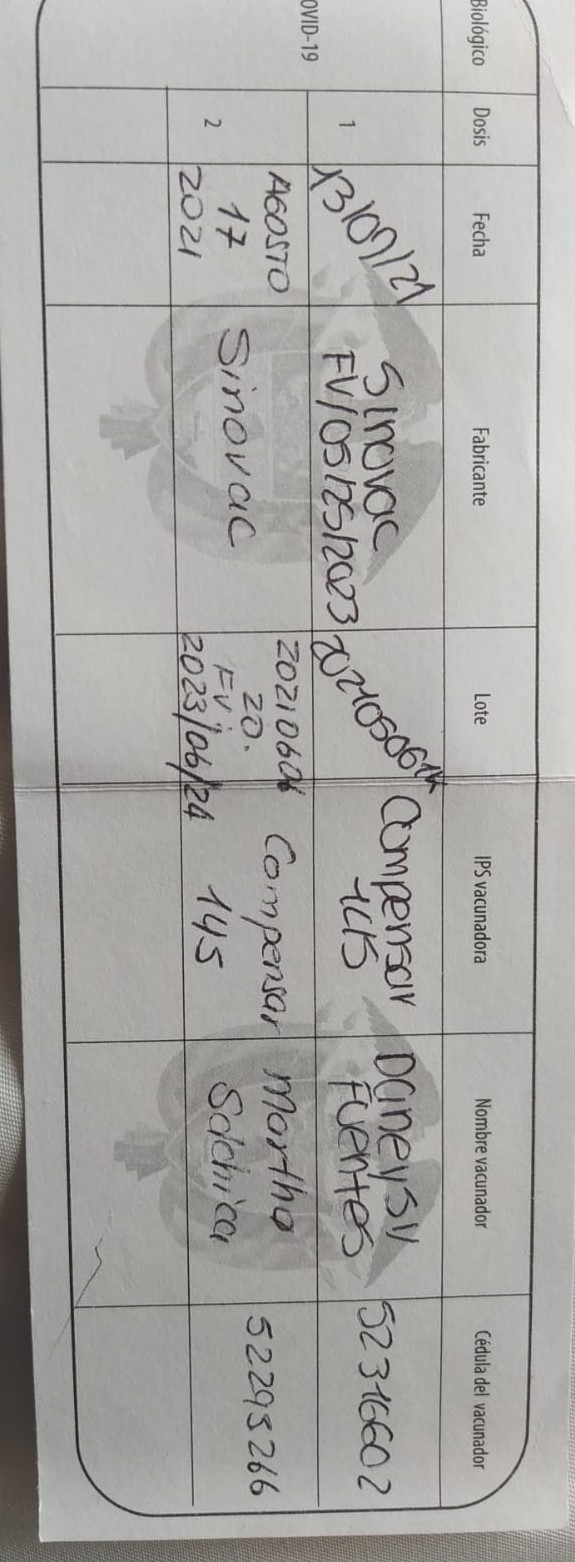 Biológico Dosis Fecha Fabricante Lote IPS vacunadora Nombre vacunador Cédula del vacunador
OVID-19
1
13/07/21
Sinovac
FV/05/25/2023
Compensar
145
Fuentes
52316602
2
AGOSTO
17
2021
Sinovac
20210606
20.
FV:
2023/06/24
Compensar
145
Martha
Solchica
52295266